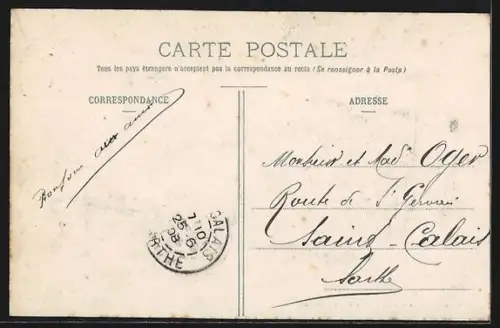 CARTE POSTALE
Tous les pays étrangers n'acceptent pas la correspondance au recto (Se renseigner à la Poste)
CORRESPONDANCE
ADRESSE
Bonjour aux amis
Monsieur et Mad Oger
Route de St Gervais
Saint-Calais
Sarthe
CALAIS
7 10
25 - 6
08
RTHE